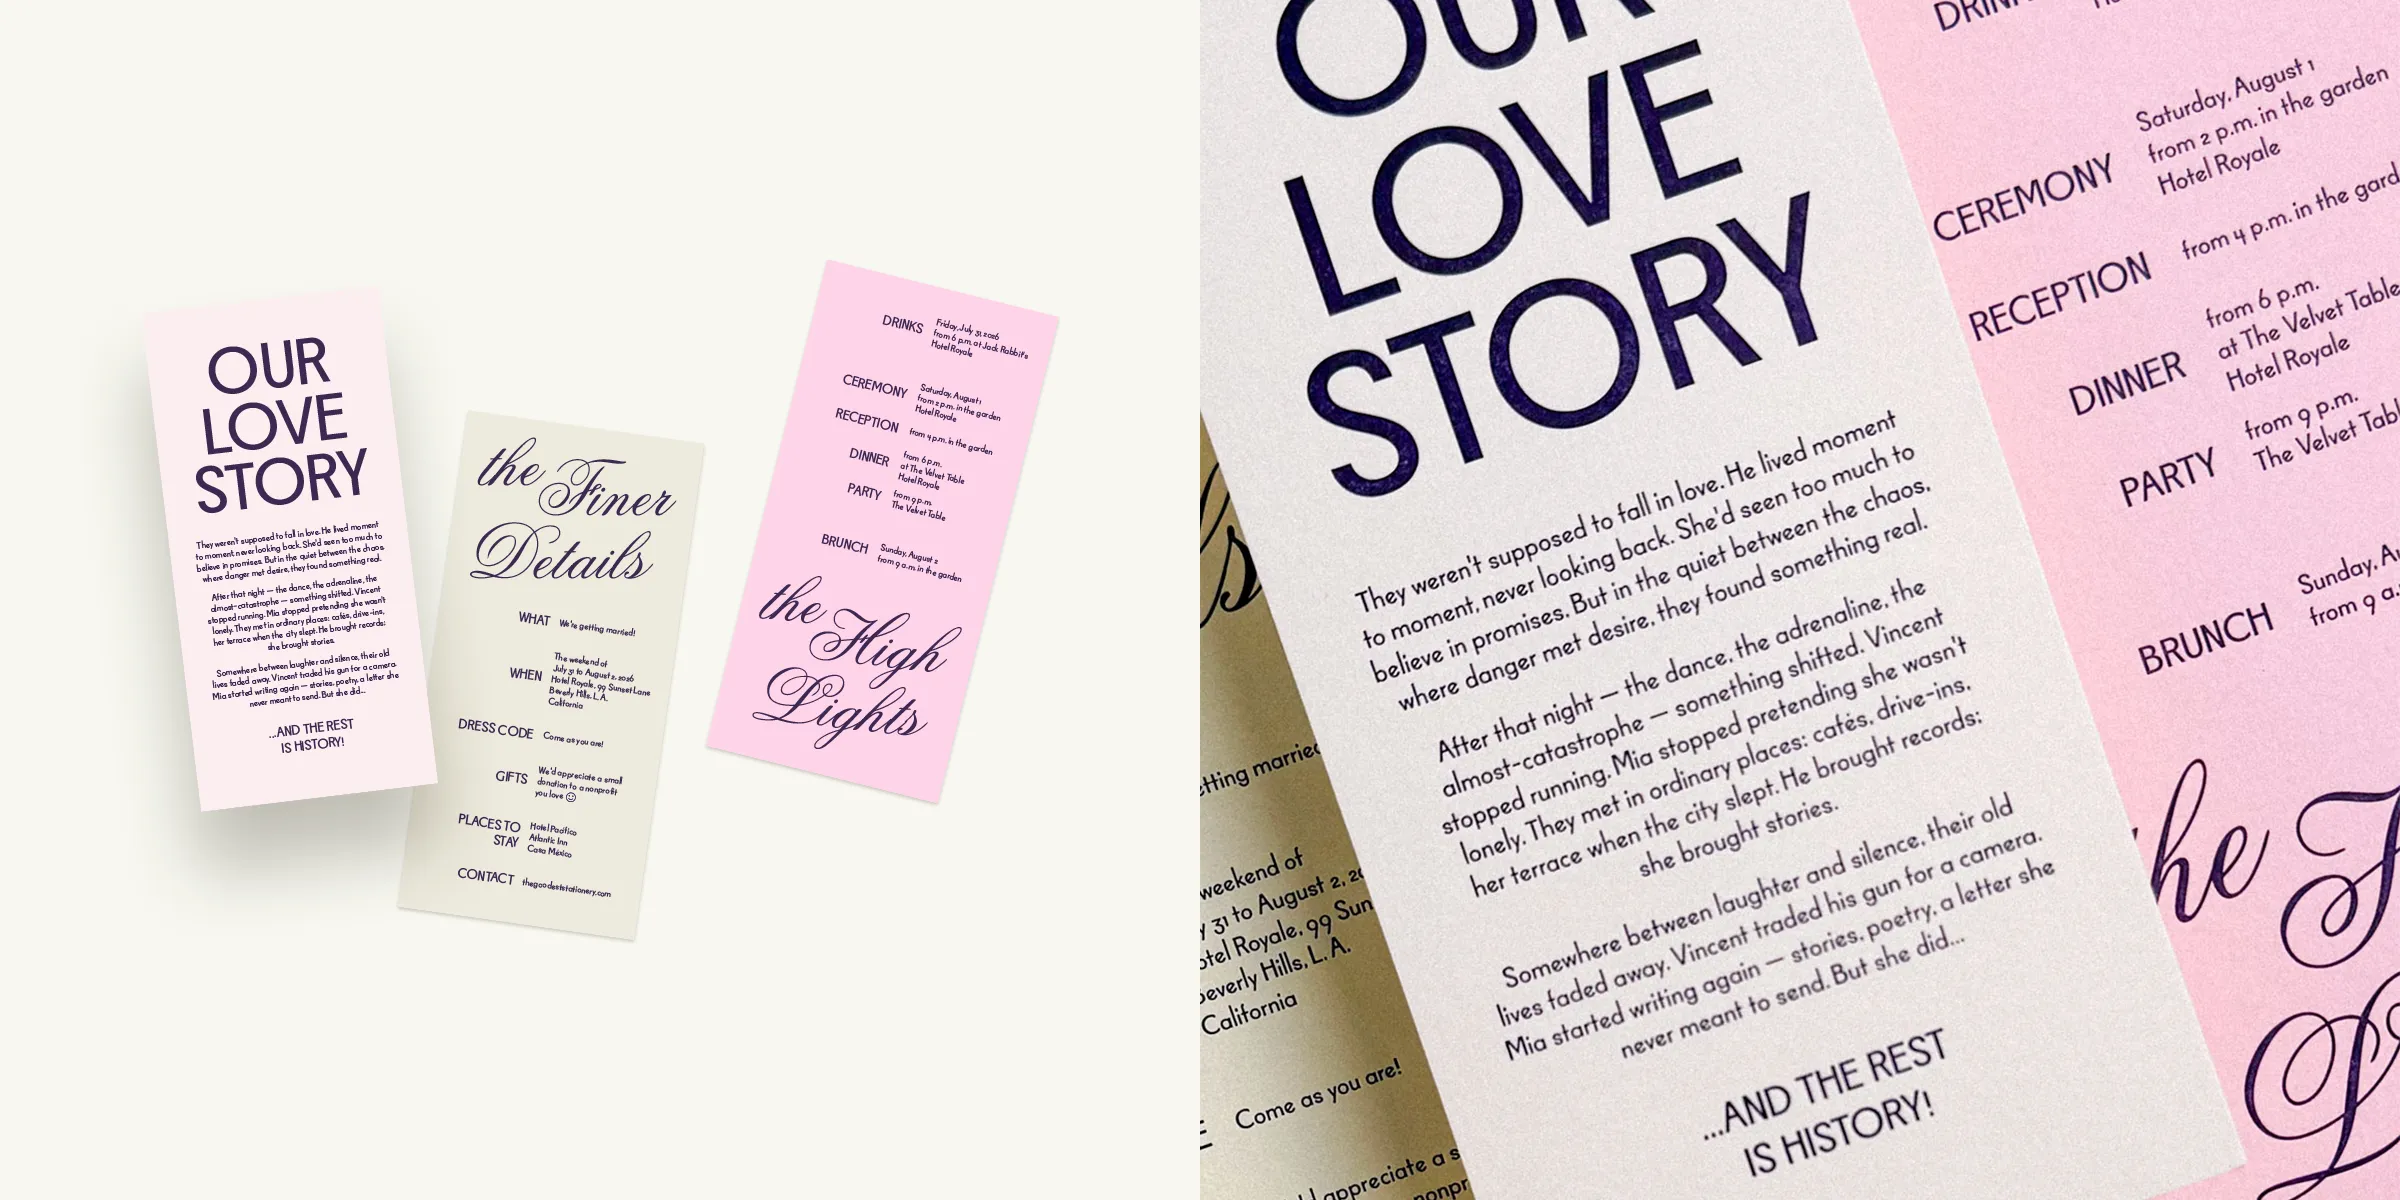 OUR
LOVE
STORY
They weren't supposed to fall in love. He lived moment
to moment, never looking back. She'd seen too much to
believe in promises. But in the quiet between the chaos,
where danger met desire, they found something real.
After that night — the dance, the adrenaline, the
almost-catastrophe — something shifted. Vincent
stopped running. Mia stopped pretending she wasn't
lonely. They met in ordinary places: cafés, drive-ins,
her terrace when the city slept. He brought records;
she brought stories.
Somewhere between laughter and silence, their old
lives faded away. Vincent traded his gun for a camera.
Mia started writing again — stories, poetry, a letter she
never meant to send. But she did...
...AND THE REST
IS HISTORY!
the Finer
Details
WHAT We're getting married!
WHEN The weekend of
July 31 to August 2, 2026
Hotel Royale, 99 Sunset Lane
Beverly Hills, L.A.
California
DRESS CODE Come as you are!
GIFTS We'd appreciate a small
donation to a nonprofit
you love ☺
PLACES TO
STAY
Hotel Pacífico
Atlantic Inn
Casa México
CONTACT thegoodeststationery.com
DRINKS Friday, July 31, 2026
from 6 p.m. at Jack Rabbit's
Hotel Royale
CEREMONY Saturday, August 1
from 2 p.m. in the garden
Hotel Royale
RECEPTION from 4 p.m. in the garden
DINNER from 6 p.m.
at The Velvet Table
Hotel Royale
PARTY from 9 p.m.
The Velvet Table
BRUNCH Sunday, August 2
from 9 a.m. in the garden
the High
Lights
OUR
LOVE
STORY
They weren't supposed to fall in love. He lived moment
to moment, never looking back. She'd seen too much to
believe in promises. But in the quiet between the chaos,
where danger met desire, they found something real.
After that night — the dance, the adrenaline, the
almost-catastrophe — something shifted. Vincent
stopped running. Mia stopped pretending she wasn't
lonely. They met in ordinary places: cafés, drive-ins,
her terrace when the city slept. He brought records;
she brought stories.
Somewhere between laughter and silence, their old
lives faded away. Vincent traded his gun for a camera.
Mia started writing again — stories, poetry, a letter she
never meant to send. But she did...
...AND THE REST
IS HISTORY!
weekend of
31 to August 2,
Royale, 99
Hills, L.A.
California
Come as you are!
appreciate a
CEREMONY Saturday, August 1
from 2 p.m. in the garden
Hotel Royale
RECEPTION from 4 p.m. in the
DINNER from 6 p.m.
at The Velvet Table
Hotel Royale
PARTY from 9 p.m.
The Velvet
BRUNCH Sunday,
from 9